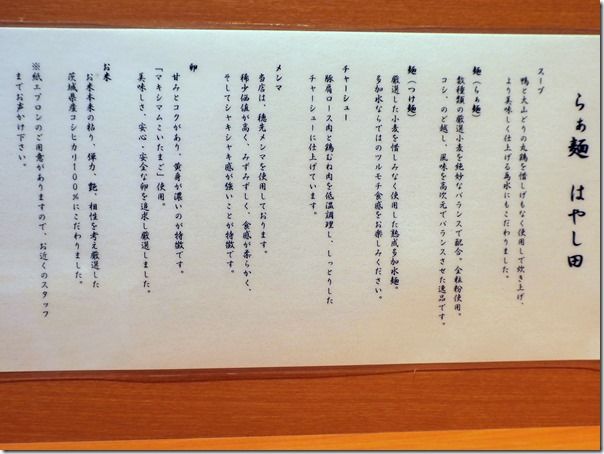 らぁ麺 はやし田
スープ
鴨と大山どりの丸鶏を惜しげもなく使用して炊き上げ、
より美味しく仕上げる為水にもこだわりました。
麺(らぁ麺)
数種類の厳選小麦を絶妙なバランスで配合。全粒粉使用。
コシ、のど越し、風味を高次元でバランスさせた逸品です。
麺(つけ麺)
厳選した小麦を惜しみなく使用した熟成多加水麺。
多加水ならではのツルモチ食感をお楽しみください。
チャーシュー
豚肩ロース肉と鶏むね肉を低温調理し、しっとりした
チャーシューに仕上げています。
メンマ
当店は、穂先メンマを使用しております。
稀少価値が高く、みずみずしく、食感が柔らかく、
そしてシャキシャキ感が強いことが特徴です。
卵
甘みとコクがあり、黄身が濃いのが特徴です。
「マキシマムこいたまご」使用。
美味しさ、安心・安全な卵を追求し厳選しました。
お米
お米本来の粘り、弾力、艶、相性を考え厳選した
茨城県産コシヒカリ100%にこだわりました。
※紙エプロンのご用意がありますので、お近くのスタッフ
までお声かけ下さい。